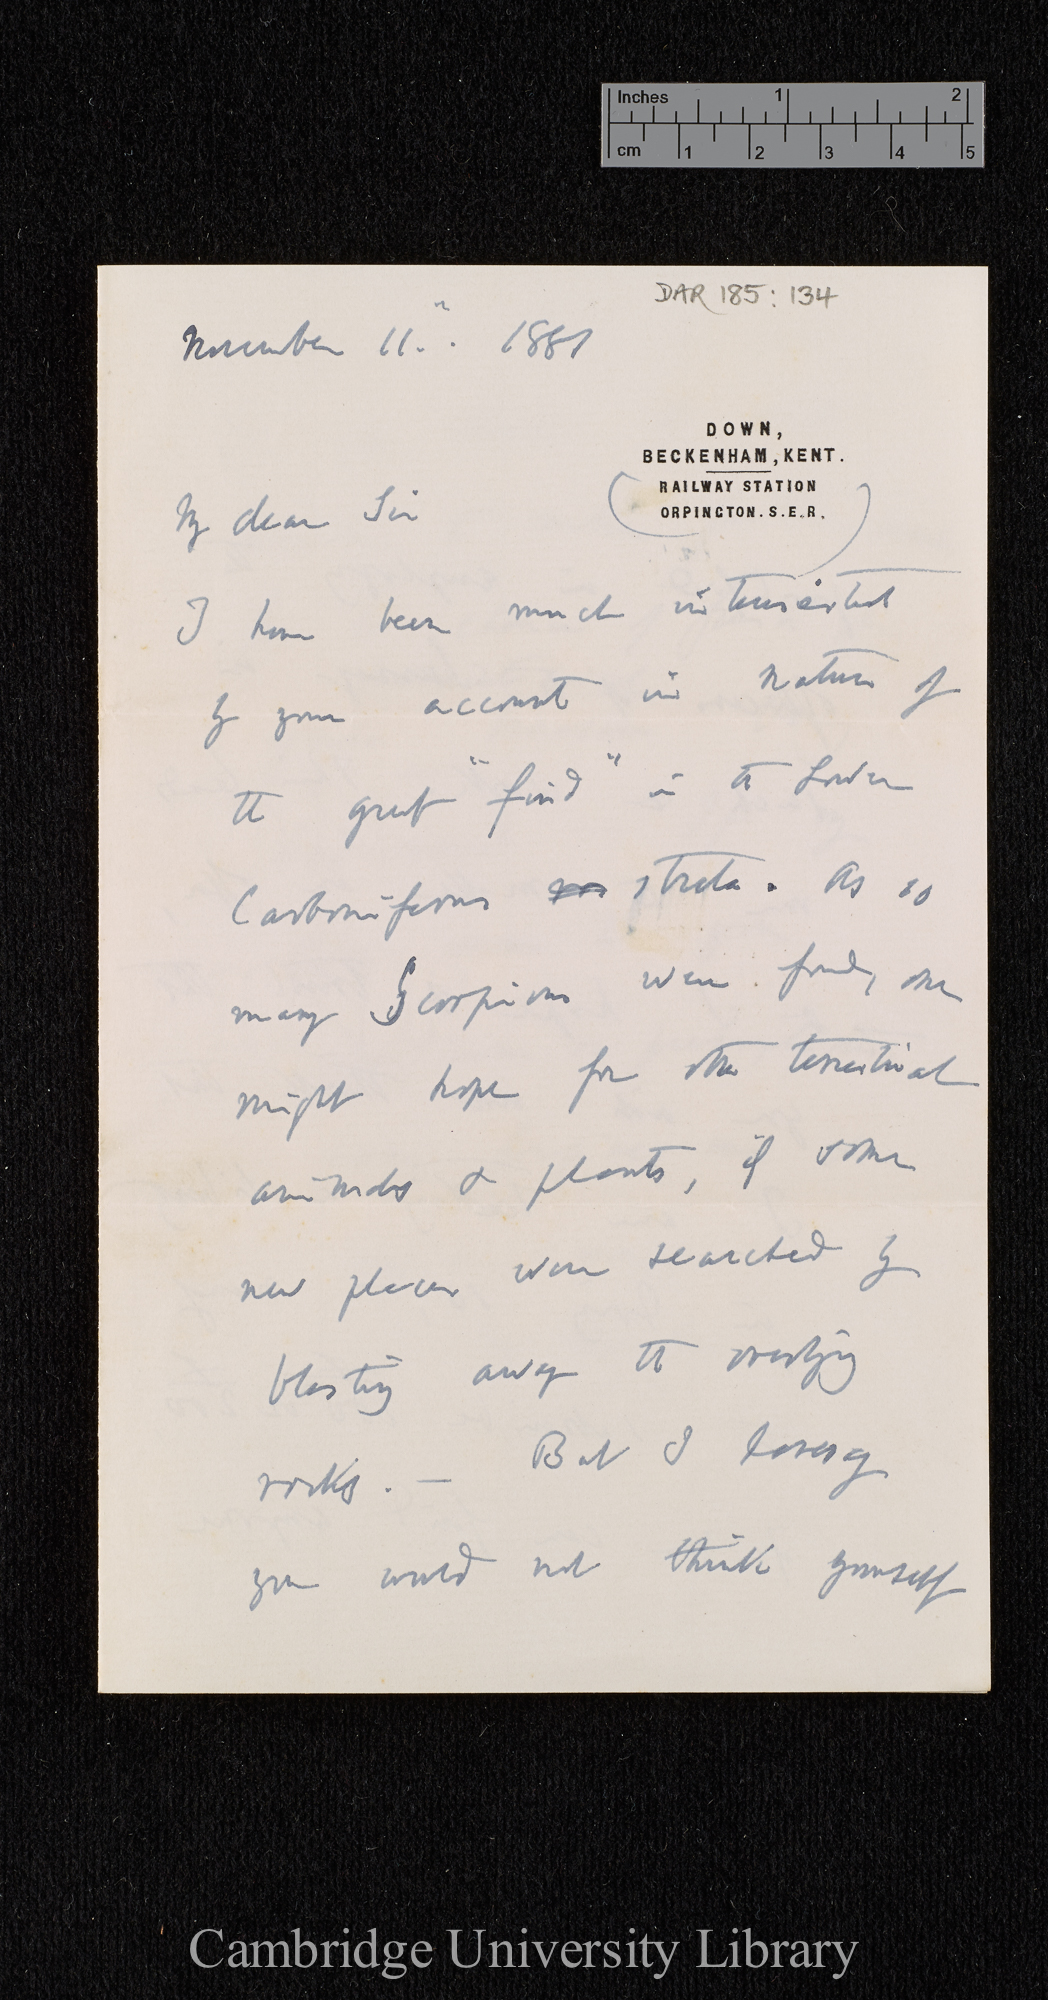 Inches 1 2
cm 1 2 3 4 5
DAR 185: 134
November 11.th 1881
DOWN,
BECKENHAM, KENT.
RAILWAY STATION
ORPINGTON. S.E.R.
My dear Sir
I have been much interested
by your account in Nature of
the great "find" in the Lower
Carboniferous strata. As so
many Scorpions were found, one
might hope for other terrestrial
animals & plants, if some
new places were searched by
blasting away the overlying
rocks. — But I daresay
you would not think yourself
Cambridge University Library